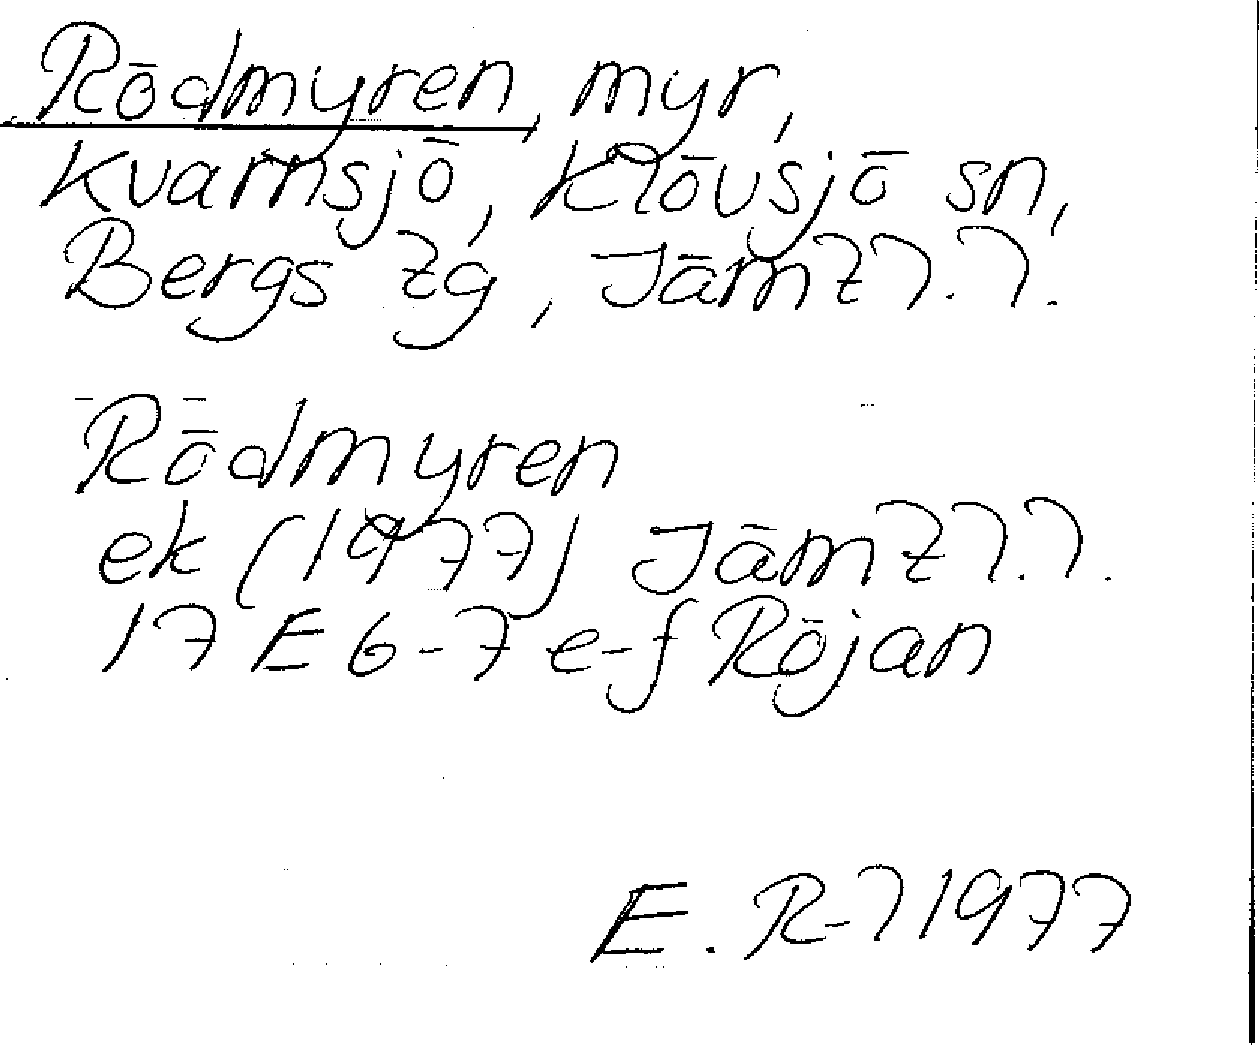 Rödmyren, myr,
Kvarnsjö, Klövsjö sn,
Bergs tg, Jämtl. l.
Rödmyren
ek (1977) Jämtl. l.
17 E 6-7 e-f Röjan
E. R-l 1977